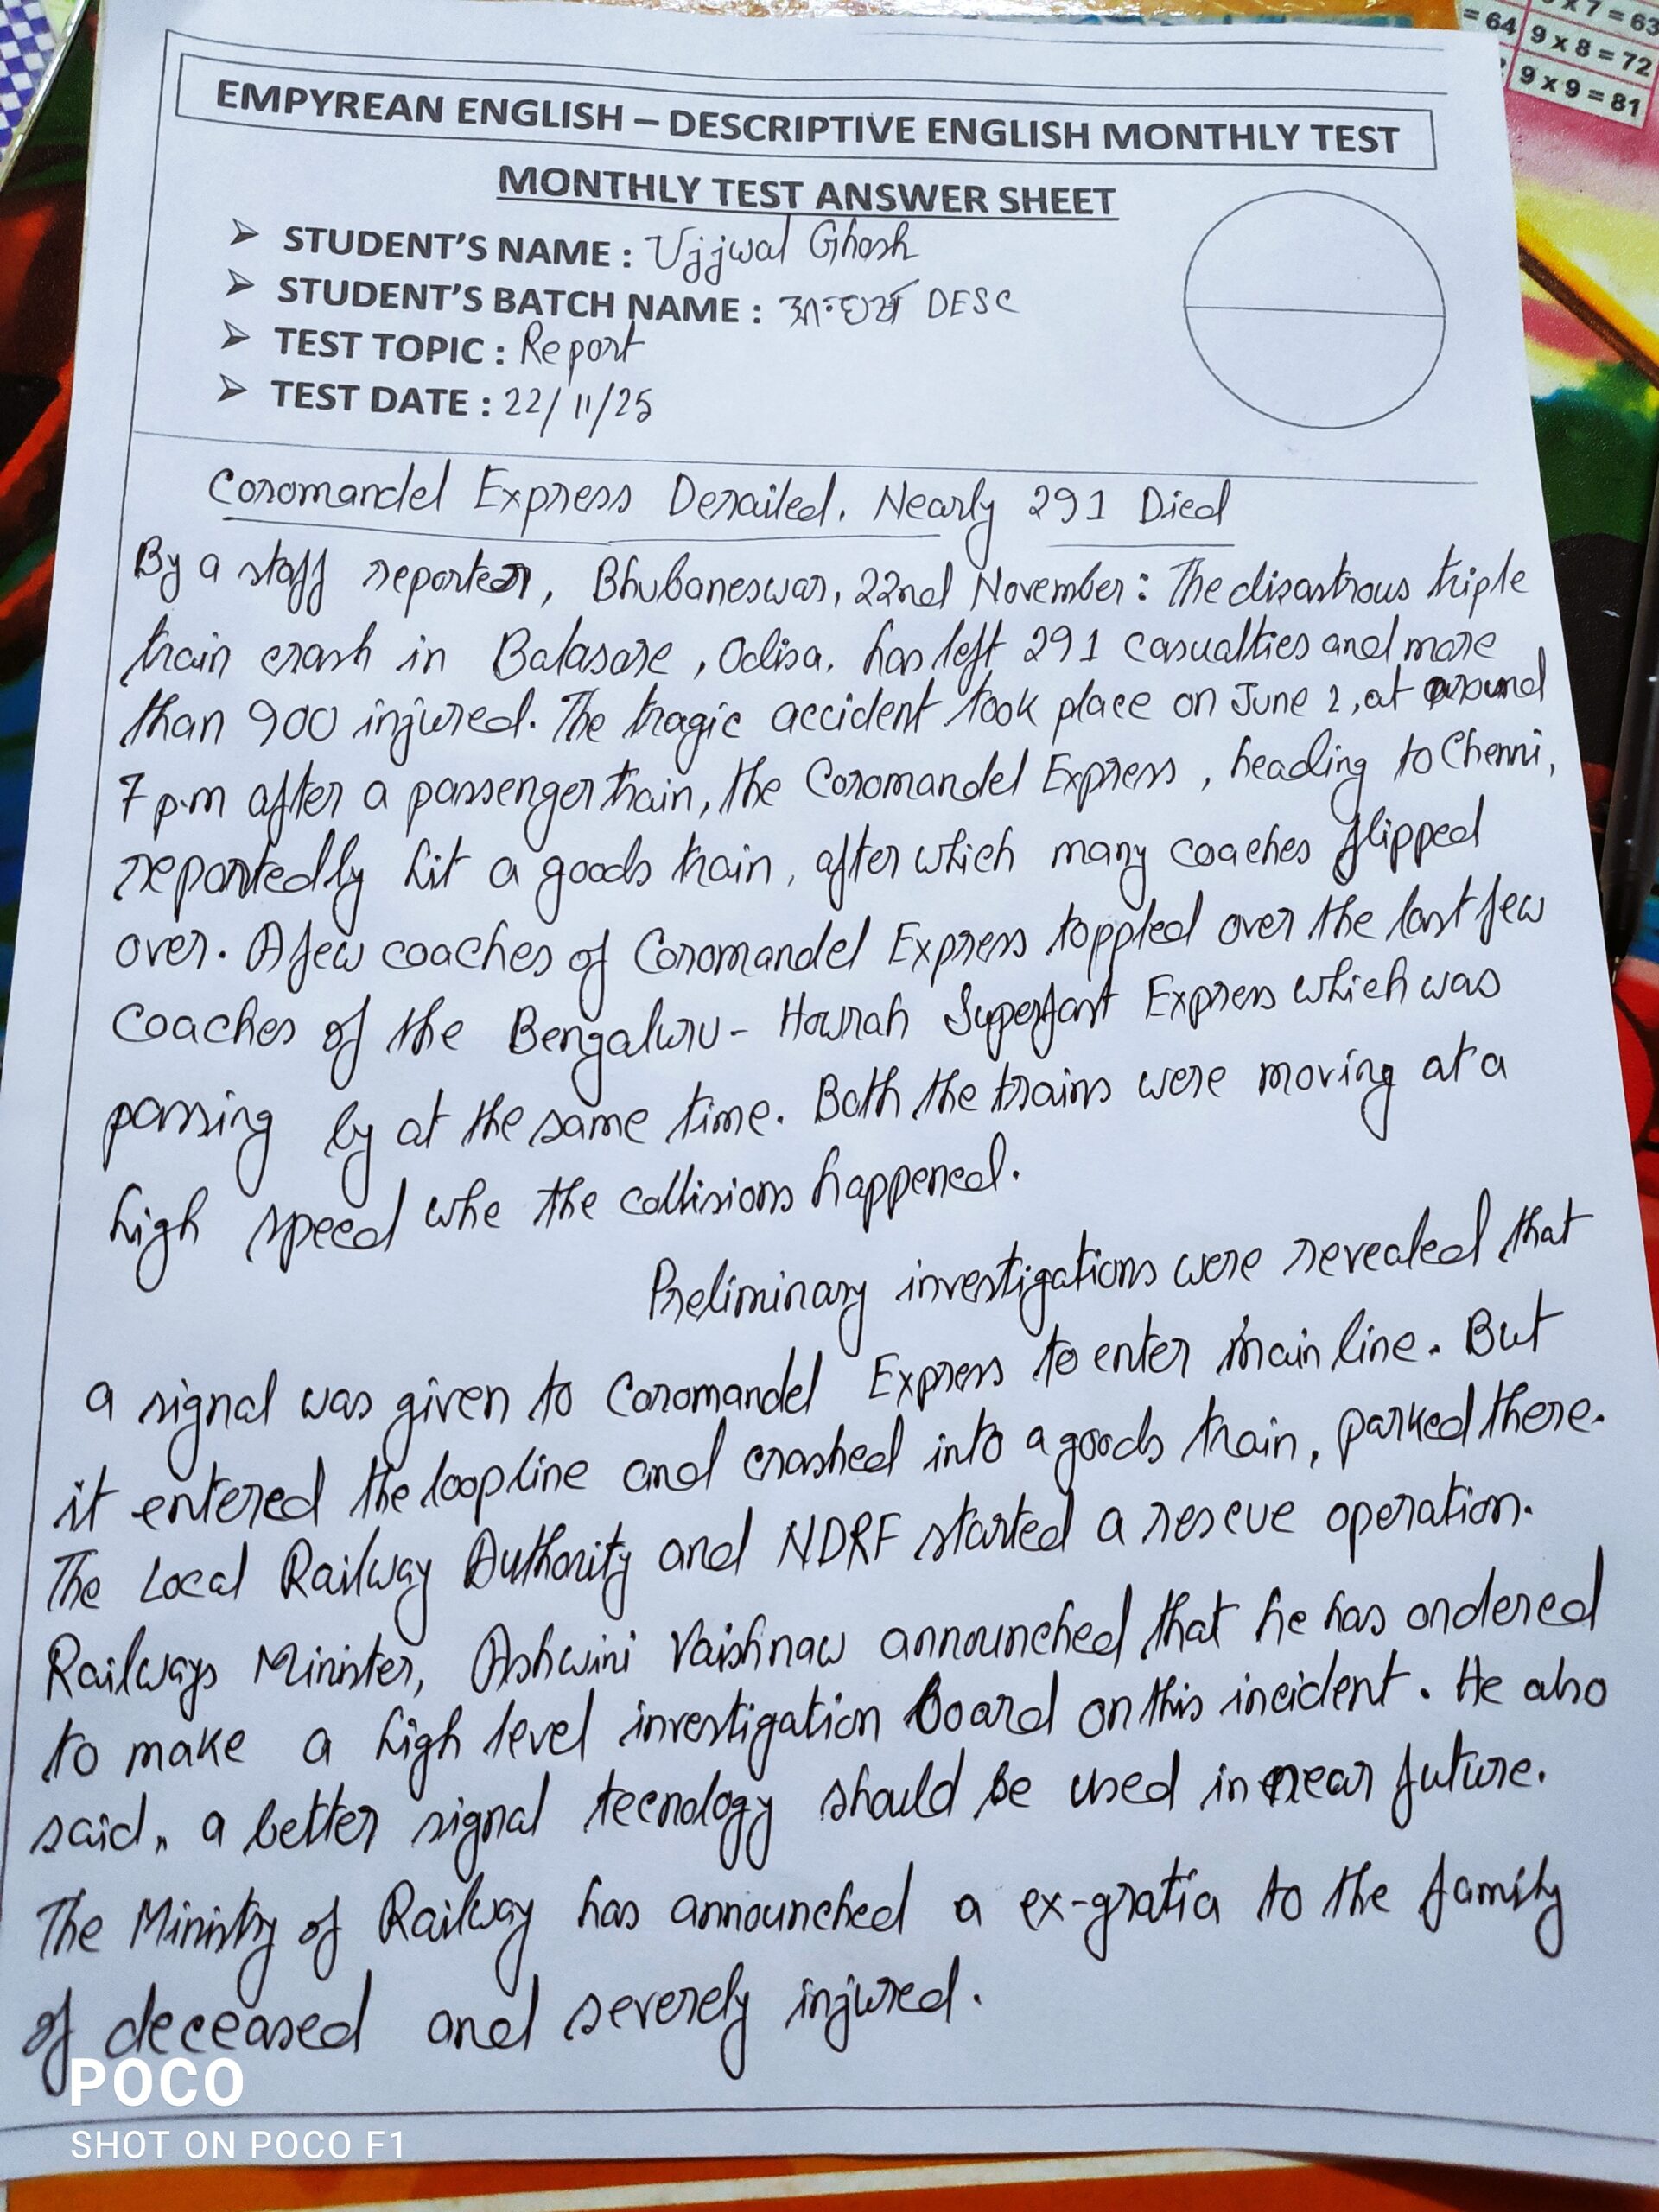 = 64
9 x 7 = 63
9 x 8 = 72
9 x 9 = 81
EMPYREAN ENGLISH – DESCRIPTIVE ENGLISH MONTHLY TEST
MONTHLY TEST ANSWER SHEET
➢ STUDENT'S NAME : Ujjwal Ghosh
➢ STUDENT'S BATCH NAME : DESC
➢ TEST TOPIC : Report
➢ TEST DATE : 22/11/25
Coromandel Express Derailed, Nearly 291 Died
By a staff reporter, Bhubaneswar, 22nd November : The disastrous triple
train crash in Balasore, Odisa, has left 291 casualties and more
than 900 injured. The tragic accident took place on June 2, at around
7 p.m after a passenger train, the Coromandel Express, heading to Chenni,
reportedly hit a goods train, after which many coaches flipped
over. A few coaches of Coromandel Express toppled over the last few
coaches of the Bengaluru - Howrah Superfast Express which was
passing by at the same time. Both the trains were moving at a
high speed whe the collisions happened.
Preliminary investigations were revealed that
a signal was given to Coromandel Express to enter main line. But
it entered the loopline and crashed into a goods train, parked there.
The Local Railway Authority and NDRF started a rescue operation.
Railways Minister, Ashwini Vaishnaw announched that he has ordered
to make a high level investigation Board on this incident. He also
said, a better signal tecnology should be used in near future.
The Ministry of Railway has announched a ex-gratia to the family
of deceased and severely injured.
POCO
SHOT ON POCO F1